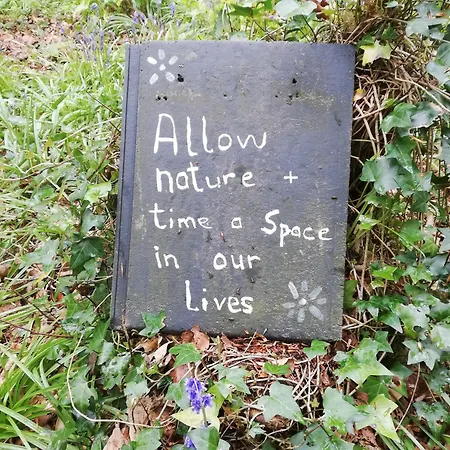 Allow
nature +
time a Space
in our
Lives